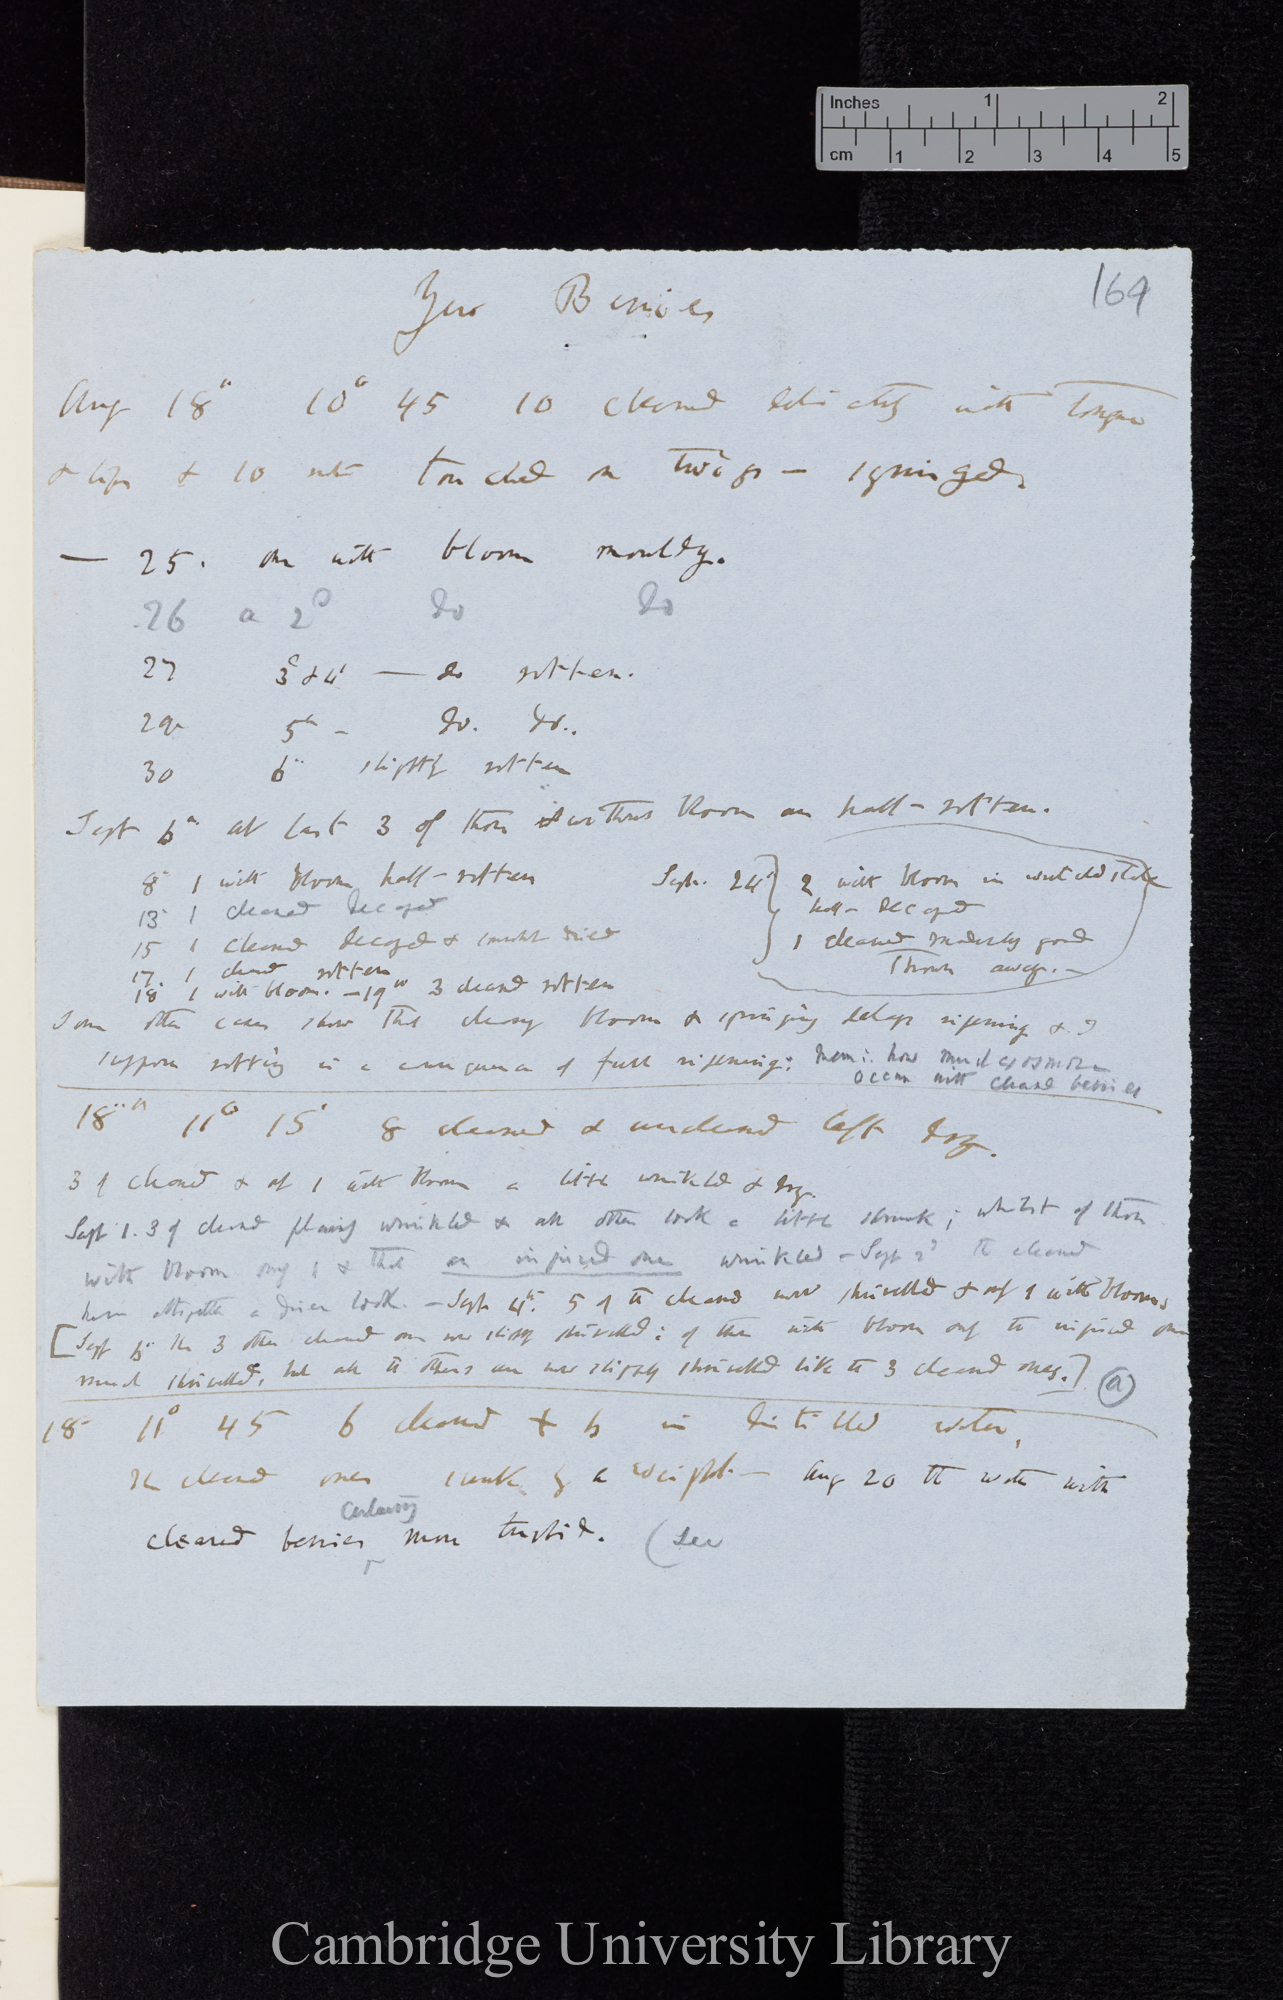 Inches 1 2
cm 1 2 3 4 5
164
Yew Berries
Aug 18th 10° 45 10 cleaned delicately with tongue
& lips & 10 not touched on twigs — syringed.
— 25. one with bloom mouldy.
26 a 2d do do
27 3d & 4 — do rotten.
29 5th — do. do.
30 6th slightly rotten
Sept 6th at last 3 of those without bloom are half-rotten.
8 1 with bloom half-rotten
13 1 cleaned decayed
15 1 cleaned decayed & dried
17 1 cleaned rotten
18 1 with bloom. — 19th 3 cleaned rotten
Sept. 24 } 2 with bloom in state
half-decayed
1 cleaned moderately good
Thrown away. —
Some other cases show that cleaning bloom & syringing delays ripening & I
suppose rotting is a consequence of full ripening: Mem: how much exosmose
occurs with cleaned berries
18th 11° 15' 8 cleaned & uncleaned left dry.
3 of cleaned & of 1 with bloom a little wrinkled & dry.
Sept 1. 3 of cleaned plainly wrinkled & all others look a little shrunk; whilst of those
with bloom only 1 & that an injured one wrinkled — Sept 2d the cleaned
have altogether a drier look. — Sept 4th. 5 of the cleaned now shrivelled & only 1 with bloom
[Sept 6th the 3 other cleaned ones now slightly shrivelled: of those with bloom only the injured one
much shrivelled, but all the others are now slightly shrivelled like the 3 cleaned ones.] (a)
18 11° 45 6 cleaned & 6 in distilled water,
The cleaned ones sunk by a weight — Aug 20 the water with
certainly
cleaned berries more turbid. (See
Cambridge University Library